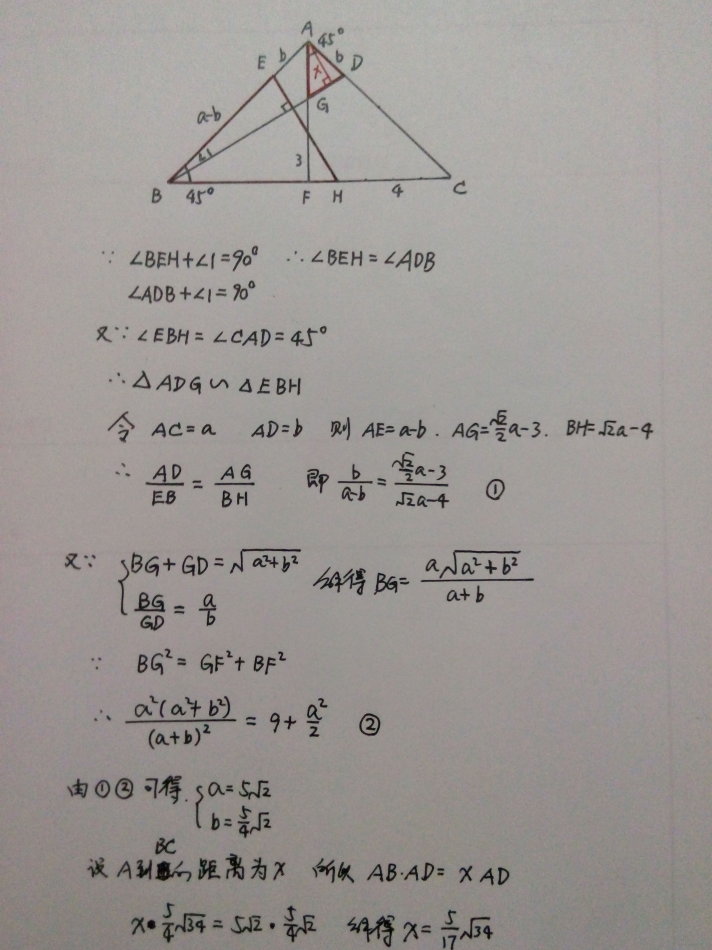 A 45°
E b b D
x
G
a-b
∠1
3
B 45° F H 4 C
∵ ∠BEH+∠1=90° ∴ ∠BEH=∠ADB
∠ADB+∠1=90°
又∵ ∠EBH=∠CAD=45°
∴ △ADG∽△EBH
令 AC=a AD=b 则 AE=a-b. AG=√2/2a-3. BH=√2a-4
∴ AD/EB = AG/BH 即 b/(a-b) = (√2/2a-3)/(√2a-4) ①
又∵ { BG+GD=√(a²+b²) 解得 BG= a√(a²+b²)/(a+b)
BG/GD = a/b
∵ BG²=GF²+BF²
∴ a²(a²+b²)/(a+b)² = 9+a²/2 ②
由①②可得 { a=5√2
b=5/4√2
设A到BC的距离为x 所以 AB·AD= x AD
x·5/4√34 = 5√2·5/4√2 解得 x=5/17√34